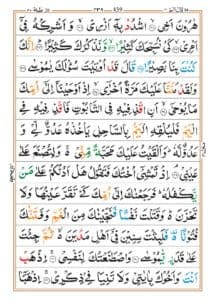 هٰرُوْنَ اَخِی ۙ اشْدُدْ بِهٖۤ اَزْرِیْ ۙ وَ اَشْرِكْهُ فِیْۤ
اَمْرِیْ ۙ كَیْ نُسَبِّحَكَ كَثِیْرًا ۙ وَّ نَذْكُرَكَ كَثِیْرًا ؕ اِنَّكَ
كُنْتَ بِنَا بَصِیْرًا قَالَ قَدْ اُوْتِیْتَ سُؤْلَكَ یٰمُوْسٰى
وَ لَقَدْ مَنَنَّا عَلَیْكَ مَرَّةً اُخْرٰۤى ۙ اِذْ اَوْحَیْنَاۤ اِلٰۤى اُمِّكَ
مَا یُوْحٰۤى ۙ اَنِ اقْذِفِیْهِ فِی التَّابُوْتِ فَاقْذِفِیْهِ فِی
الْیَمِّ فَلْیُلْقِهِ الْیَمُّ بِالسَّاحِلِ یَاْخُذْهُ عَدُوٌّ لِّیْ وَ
عَدُوٌّ لَّهٗ ؕ وَ اَلْقَیْتُ عَلَیْكَ مَحَبَّةً مِّنِّیْ ۚ وَ لِتُصْنَعَ عَلٰى
عَیْنِیْ ۘ اِذْ تَمْشِیْۤ اُخْتُكَ فَتَقُوْلُ هَلْ اَدُلُّكُمْ عَلٰى مَنْ
یَّكْفُلُهٗ ؕ فَرَجَعْنٰكَ اِلٰۤى اُمِّكَ كَیْ تَقَرَّ عَیْنُهَا وَ لَا
تَحْزَنَ ؕ وَ قَتَلْتَ نَفْسًا فَنَجَّیْنٰكَ مِنَ الْغَمِّ وَ فَتَنّٰكَ
فُتُوْنًا ۫ فَلَبِثْتَ سِنِیْنَ فِیْۤ اَهْلِ مَدْیَنَ ۙ ثُمَّ جِئْتَ
عَلٰى قَدَرٍ یّٰمُوْسٰى وَ اصْطَنَعْتُكَ لِنَفْسِیْ ۚ اِذْهَبْ
اَنْتَ وَ اَخُوْكَ بِاٰیٰتِیْ وَ لَا تَنِیَا فِیْ ذِكْرِیْ ۚ اِذْهَبَاۤ